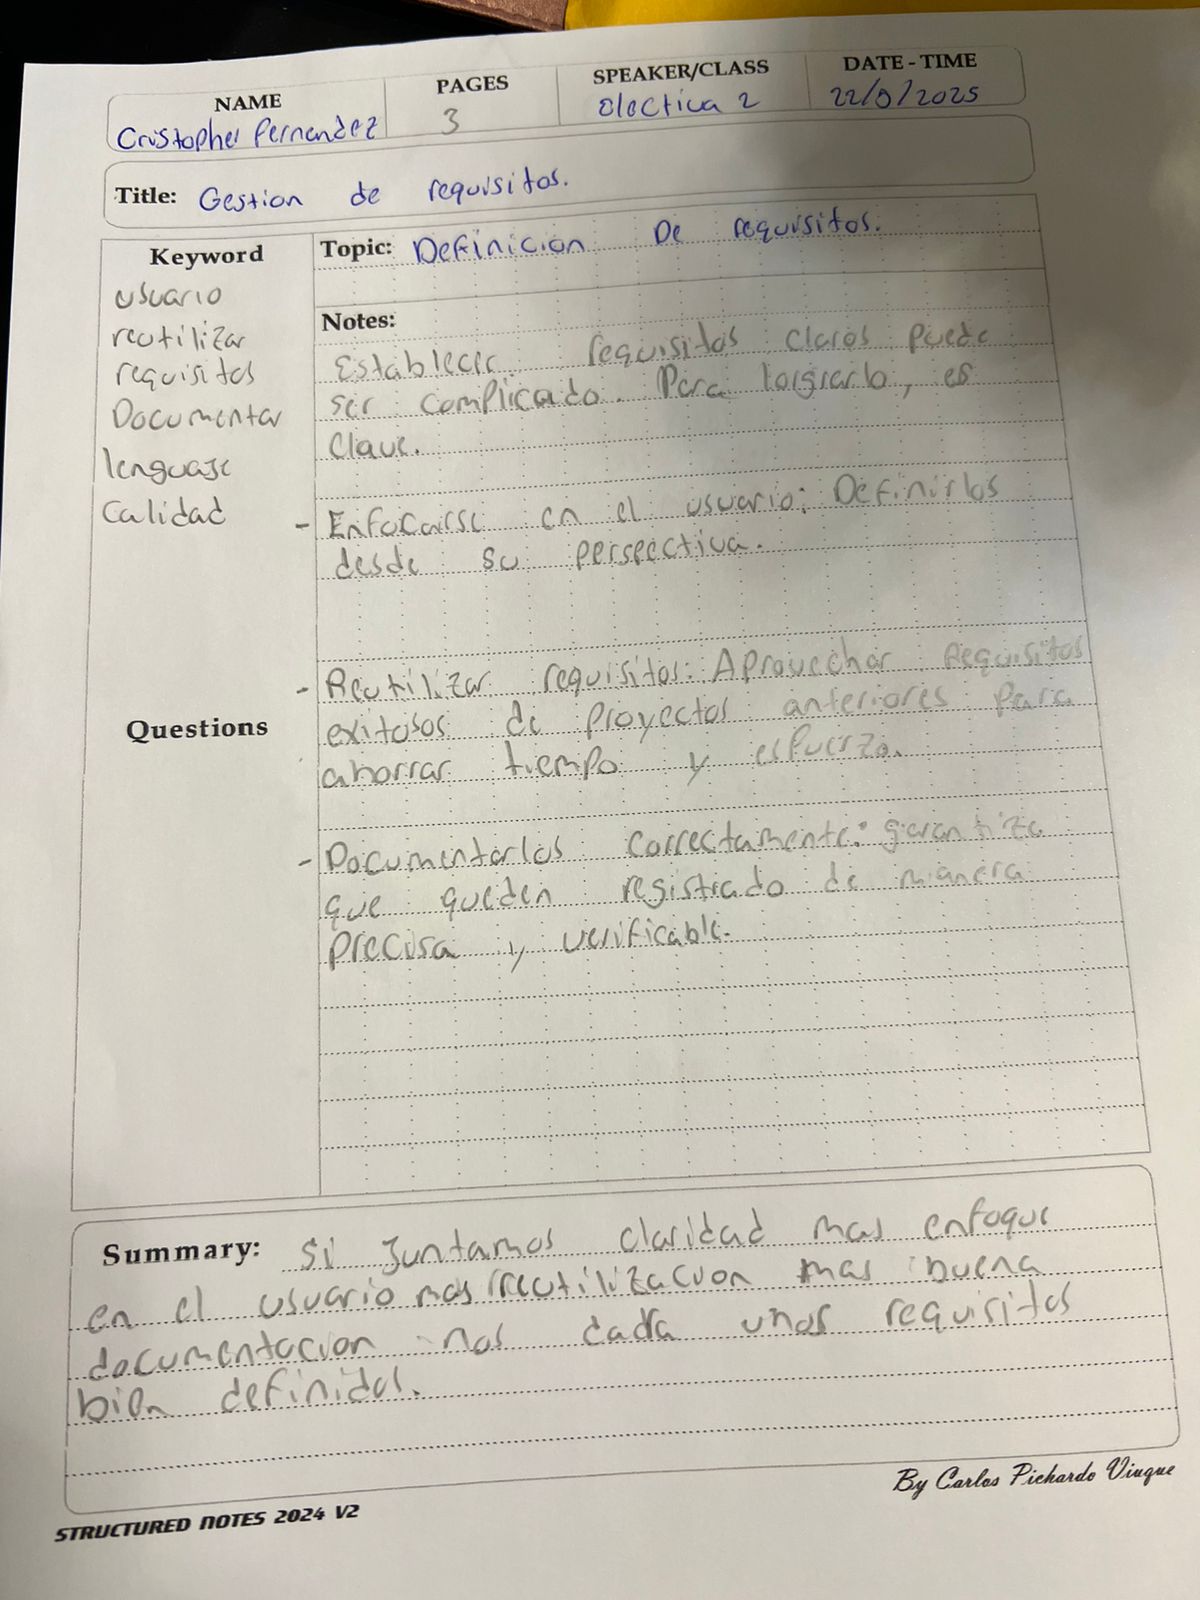 NAME
Cristopher Fernandez
PAGES
3
SPEAKER/CLASS
Electiva 2
DATE - TIME
22/9/2025
Title: Gestion de requisitos.
Keyword
usuario
reutilizar
requisitos
Documentar
lenguaje
Calidad
Questions
Topic: Definicion De requisitos.
Notes:
Establecer requisitos claros puede
ser complicado. Para lorgrarlo, es
Clave.
- Enfocarse en el usuario: Definirlos
desde su perspectiva.
- Reutilizar requisitos: Aprovechar Requisitos
exitosos de proyectos anteriores para
ahorrar tiempo y esfuerzo.
- Documentarlos correctamente: garantiza
que queden registrado de manera
precisa y verificable.
Summary: Si Juntamos claridad mas enfoque
en el usuario mas reutilizacion mas buena
documentacion nos dada unos requisitos
bien definidos.
STRUCTURED NOTES 2024 V2
By Carlos Pichardo Viuque